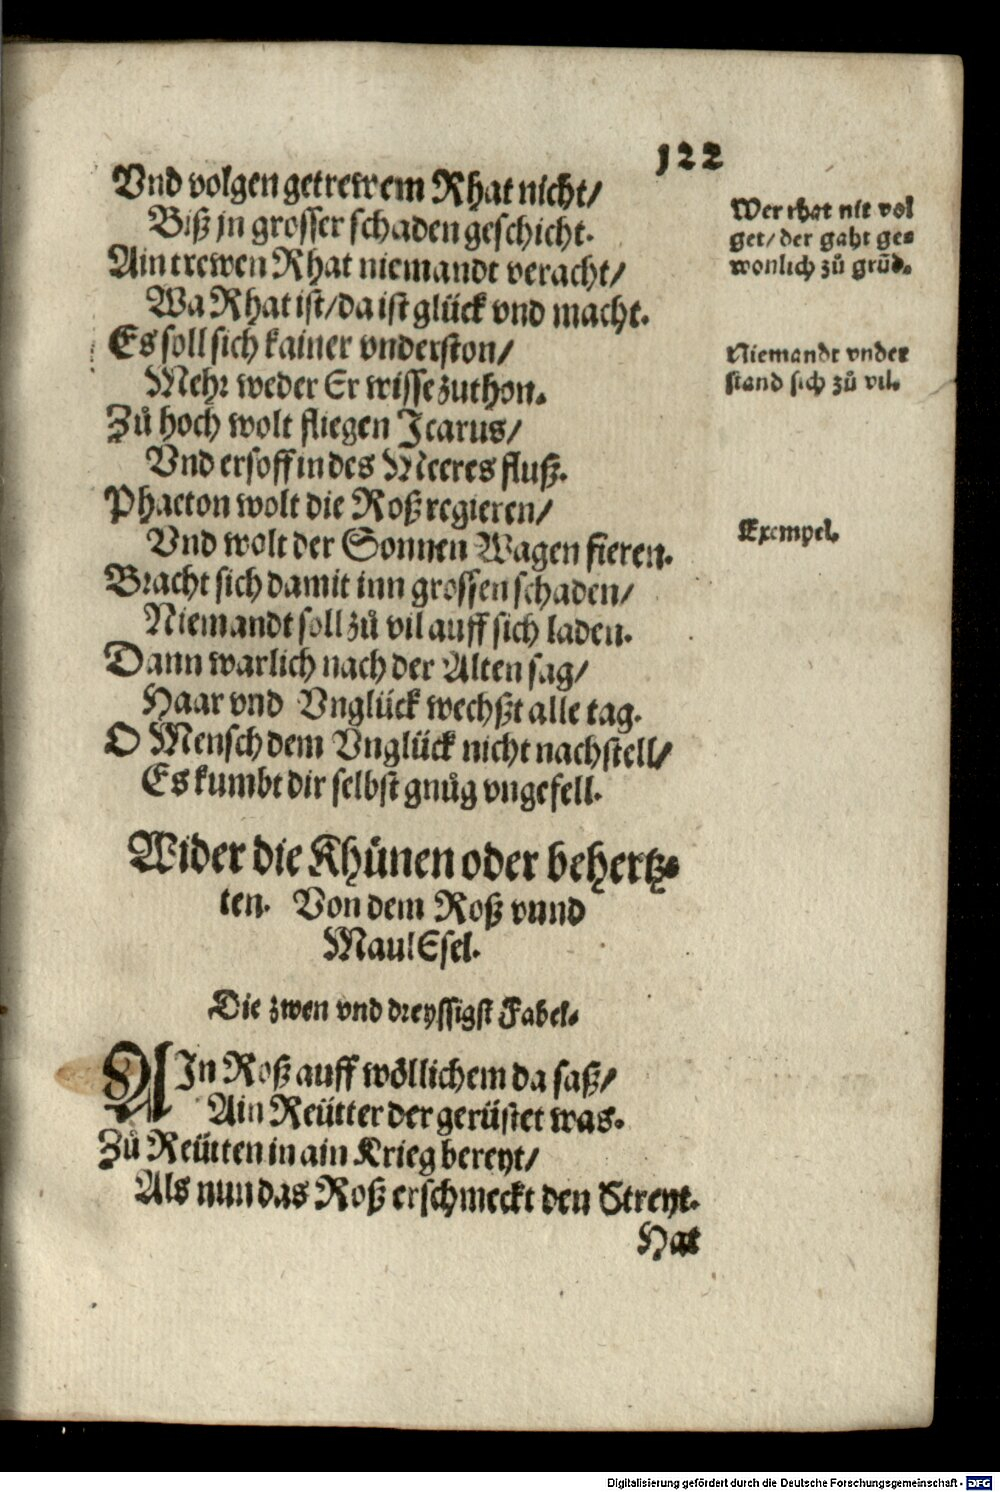 122
Vnd volgen getrewem Rhat nicht/
Biß jn grosser schaden geschicht.
Ain trewen Rhat niemandt veracht/
Wa Rhat ist/da ist glück vnd macht.
Es soll sich kainer vnderston/
Mehr weder Er wisse zuthon.
Zů hoch wolt fliegen Icarus/
Vnd ersoff in des Meeres fluß.
Phaeton wolt die Roß regieren/
Vnd wolt der Sonnen Wagen fieren.
Bracht sich damit inn grossen schaden/
Niemandt soll zů vil auff sich laden.
Dann warlich nach der Alten sag/
Haar vnd Vnglück wechßt alle tag.
O Mensch dem Vnglück nicht nachstell/
Es kumbt dir selbst gnůg vngefell.
Wer rhat nit vol
get/ der gaht ge⸗
wonlich zů grūd.
Niemandt vnder
stand sich zů vil.
Exempel.
Wider die Khünen oder behertz⸗
ten. Von dem Roß vnnd
MaulEsel.
Die zwen vnd dreyssigst Fabel.
AIn Roß auff wöllichem da saß/
Ain Reütter der gerüstet was.
Zů Reütten in ain Krieg bereyt/
Als nun das Roß erschmeckt den Streyt.
Hat
Digitalisierung gefördert durch die Deutsche Forschungsgemeinschaft - DFG